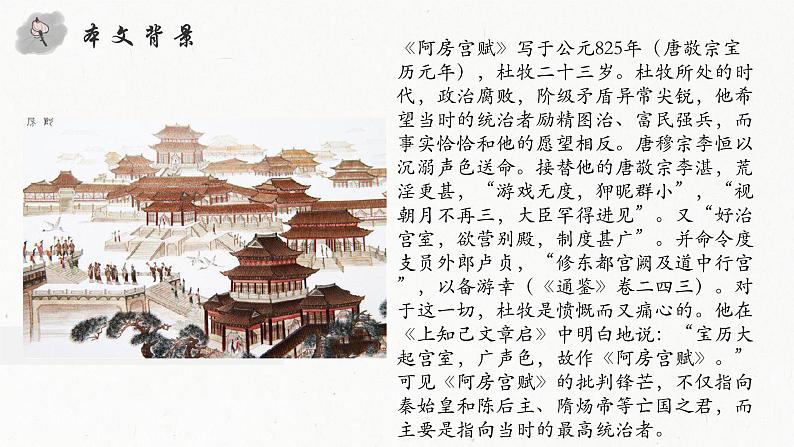 本文背景
《阿房宫赋》写于公元825年（唐敬宗宝
历元年），杜牧二十三岁。杜牧所处的时
代，政治腐败，阶级矛盾异常尖锐，他希
望当时的统治者励精图治、富民强兵，而
事实恰恰和他的愿望相反。唐穆宗李恒以
沉溺声色送命。接替他的唐敬宗李湛，荒
淫更甚，“游戏无度，狎昵群小”，“视
朝月不再三，大臣罕得进见”。又“好治
宫室，欲营别殿，制度甚广”。并命令度
支员外郎卢贞，“修东都宫阙及道中行宫
”，以备游幸（《通鉴》卷二四三）。对
于这一切，杜牧是愤慨而又痛心的。他在
《上知己文章启》中明白地说：“宝历大
起宫室，广声色，故作《阿房宫赋》。”
可见《阿房宫赋》的批判锋芒，不仅指向
秦始皇和陈后主、隋炀帝等亡国之君，而
主要是指向当时的最高统治者。